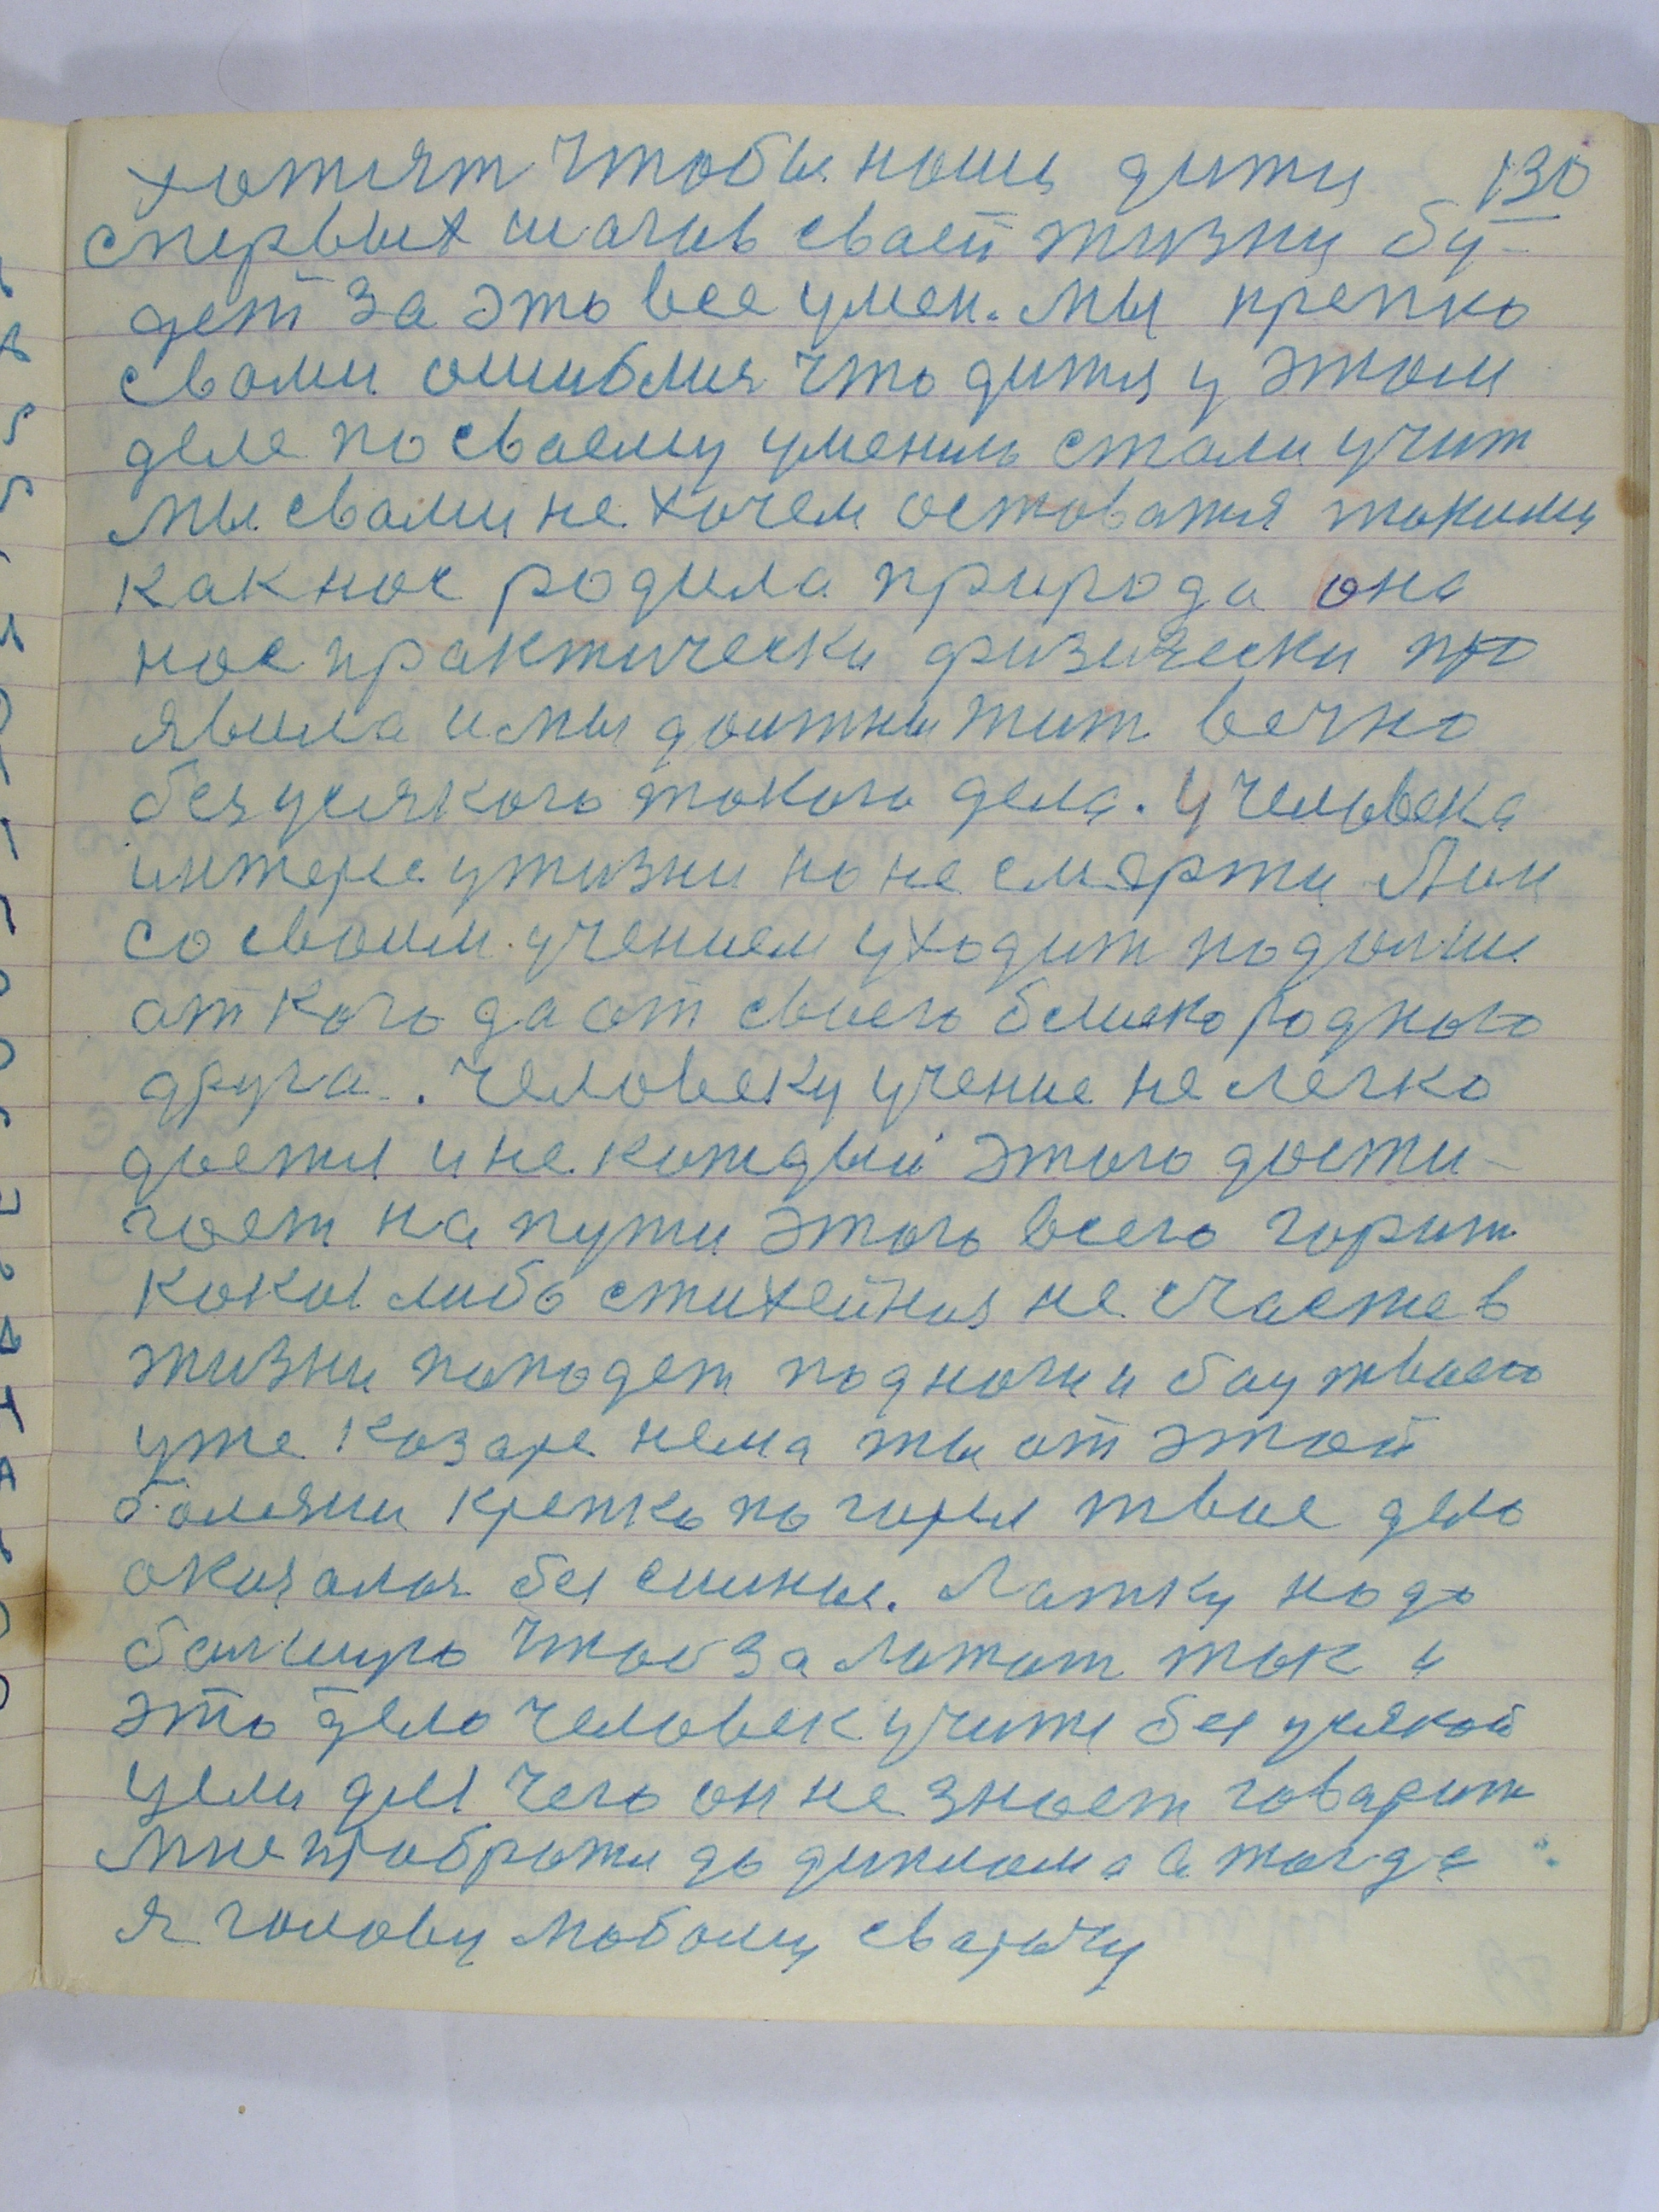 хотият чтобы ноши дитя 130
спервых шагив сваей жизни бу-
дет за это все умен. Мы крепко
свами ошиблися что дитя у этом
деле по сваему умению стали учит
мы свами не хочем оставатя такими
как нас родила природа она
нас практически физически по
явила и мы должны жит вечно
без усякого такого дела. У человека
интерес у жизни но не смерти Он
со своим учением уходит подальши
от кого да от своего близко родного
друга. Человеку учение не легко
дается и не каждый этого дости-
гает на пути этого всего горит
какая либо стихейная не счастев
жизни попадет под ноги и
уже козаре нема ты от этой
болезни крепко погорел твое дело
оказалося без смины. Латку надо
болшую чтоб залатат так и
это дело человек учитя без усякой
цели для чего он не знает говарит
мне добратя до диплома а тогда
я голову любому сварачу